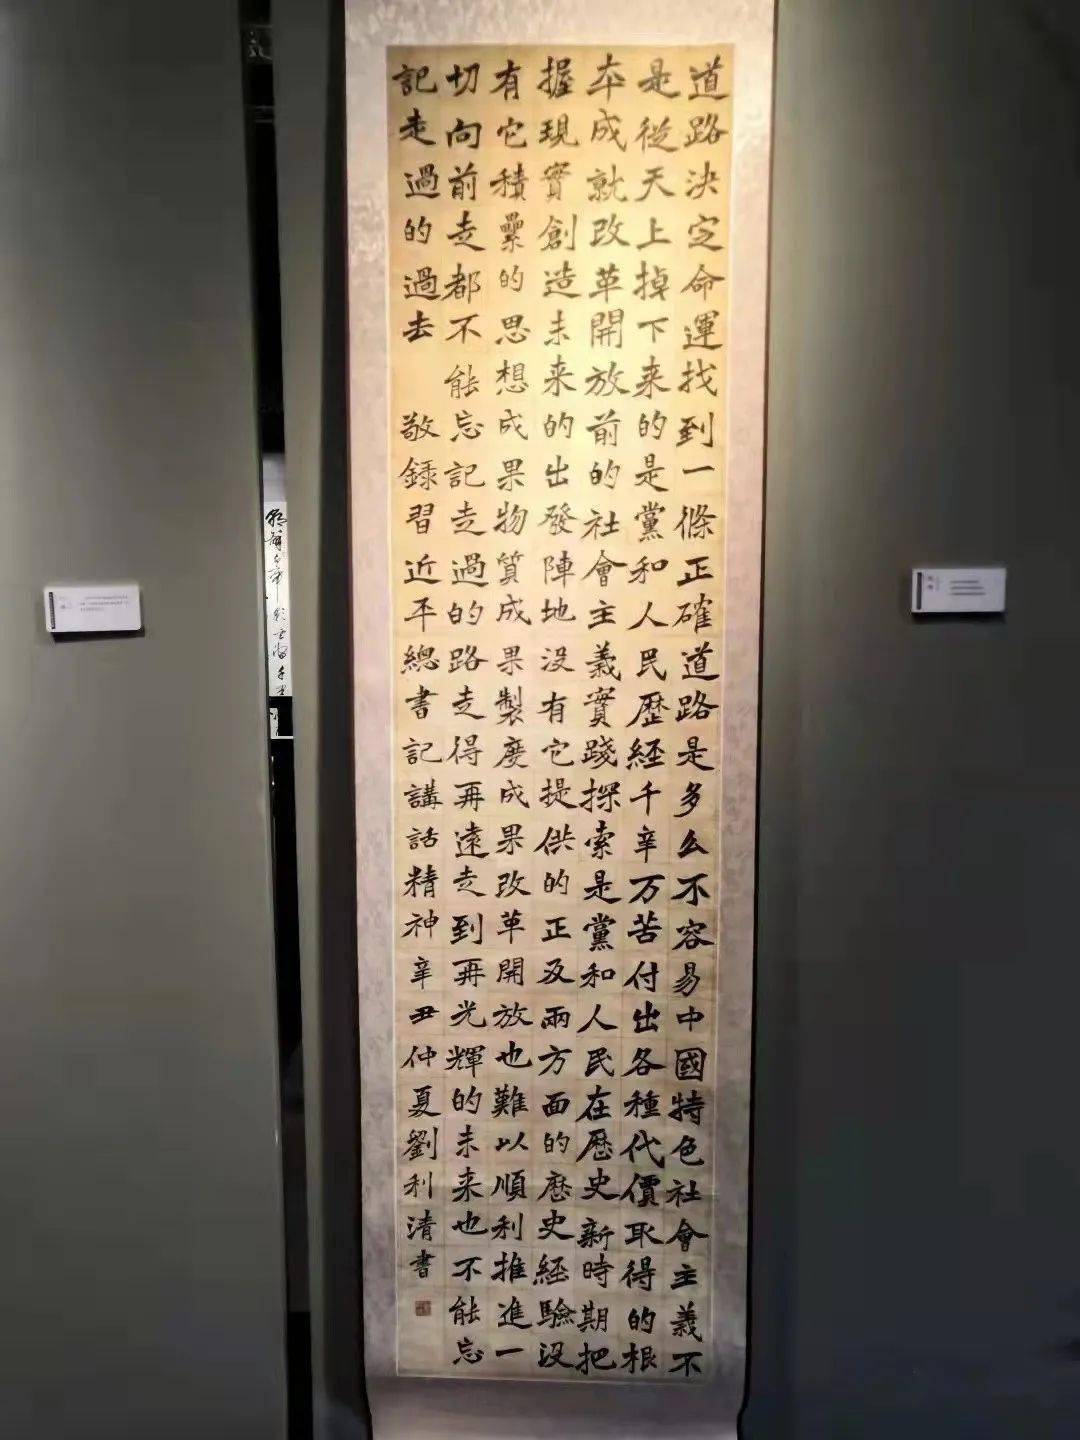 道路決定命運找到一條正確道路是多么不容易中國特色社會主義不
是從天上掉下来的是黨和人民歷經千辛万苦付出各種代價取得的根
夲成就改革開放前的社會主義實踐探索是黨和人民在歷史新時期把
握現實創造未来的出發陣地没有它提供的正及兩方面的歷史經驗没
有它積纍的思想成果物質成果製度成果改革開放也難以順利推進一
切向前走都不能忘記走過的路走得再遠走到再光輝的未来也不能忘
記走過的過去 敬録習近平總書記講話精神辛丑仲夏劉利清書